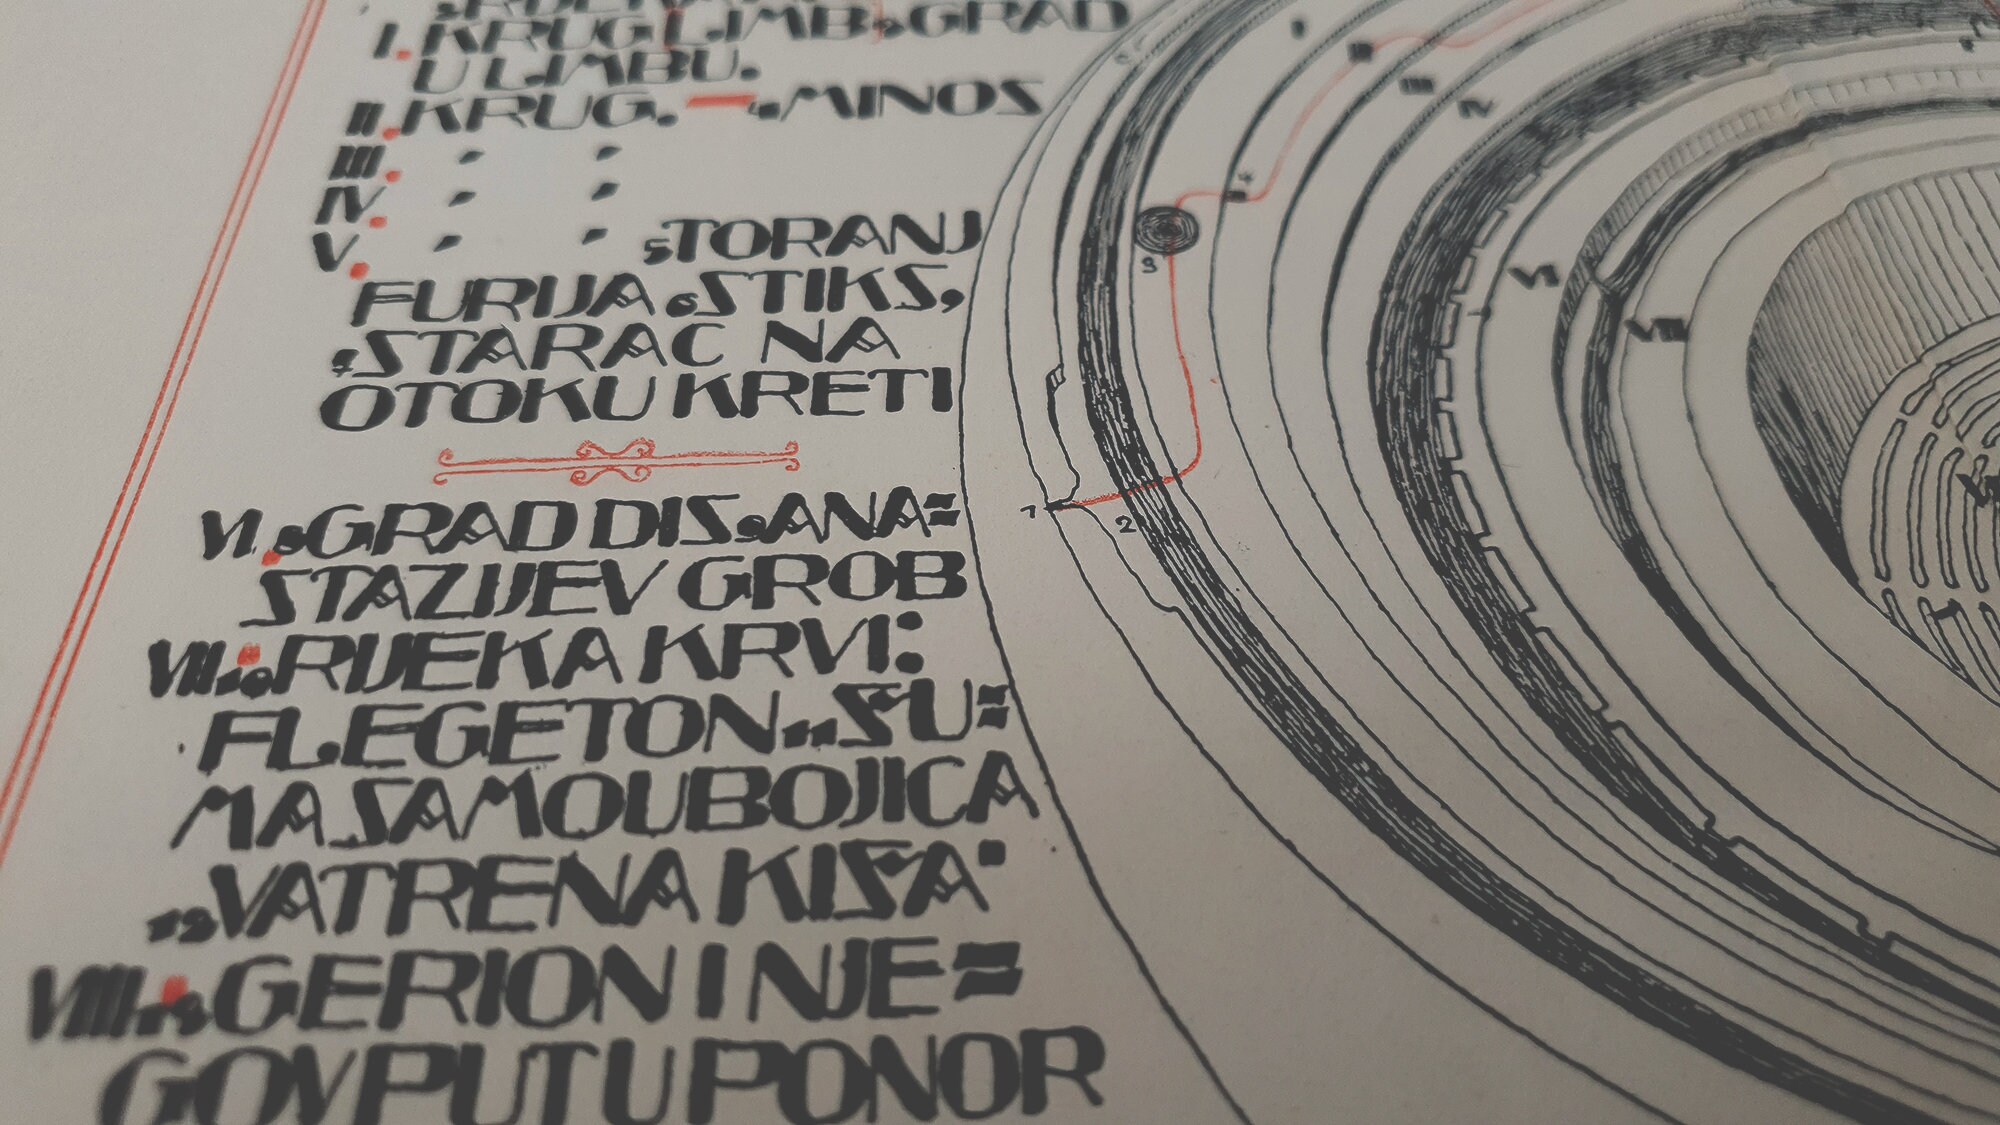 I. KRUG LIMB, GRAD
U LIMBU.
II. KRUG. — 4. MINOS
III. " "
IV. " "
V. " " 5. TORANJ
FURIJA 6. STIKS,
7. STARAC NA
OTOKU KRETI
VI. 8. GRAD DIS 9. ANA=
STAZIJEV GROB
VII. 10. RIJEKA KRVI:
FLEGETON 11. ŠU=
MA SAMOUBOJICA
12. VATRENA KIŠA.
VIII. 13. GERION I NJE=
GOV PUT U PONOR
I
II
III
IV
4
3
VI
VII
1
2